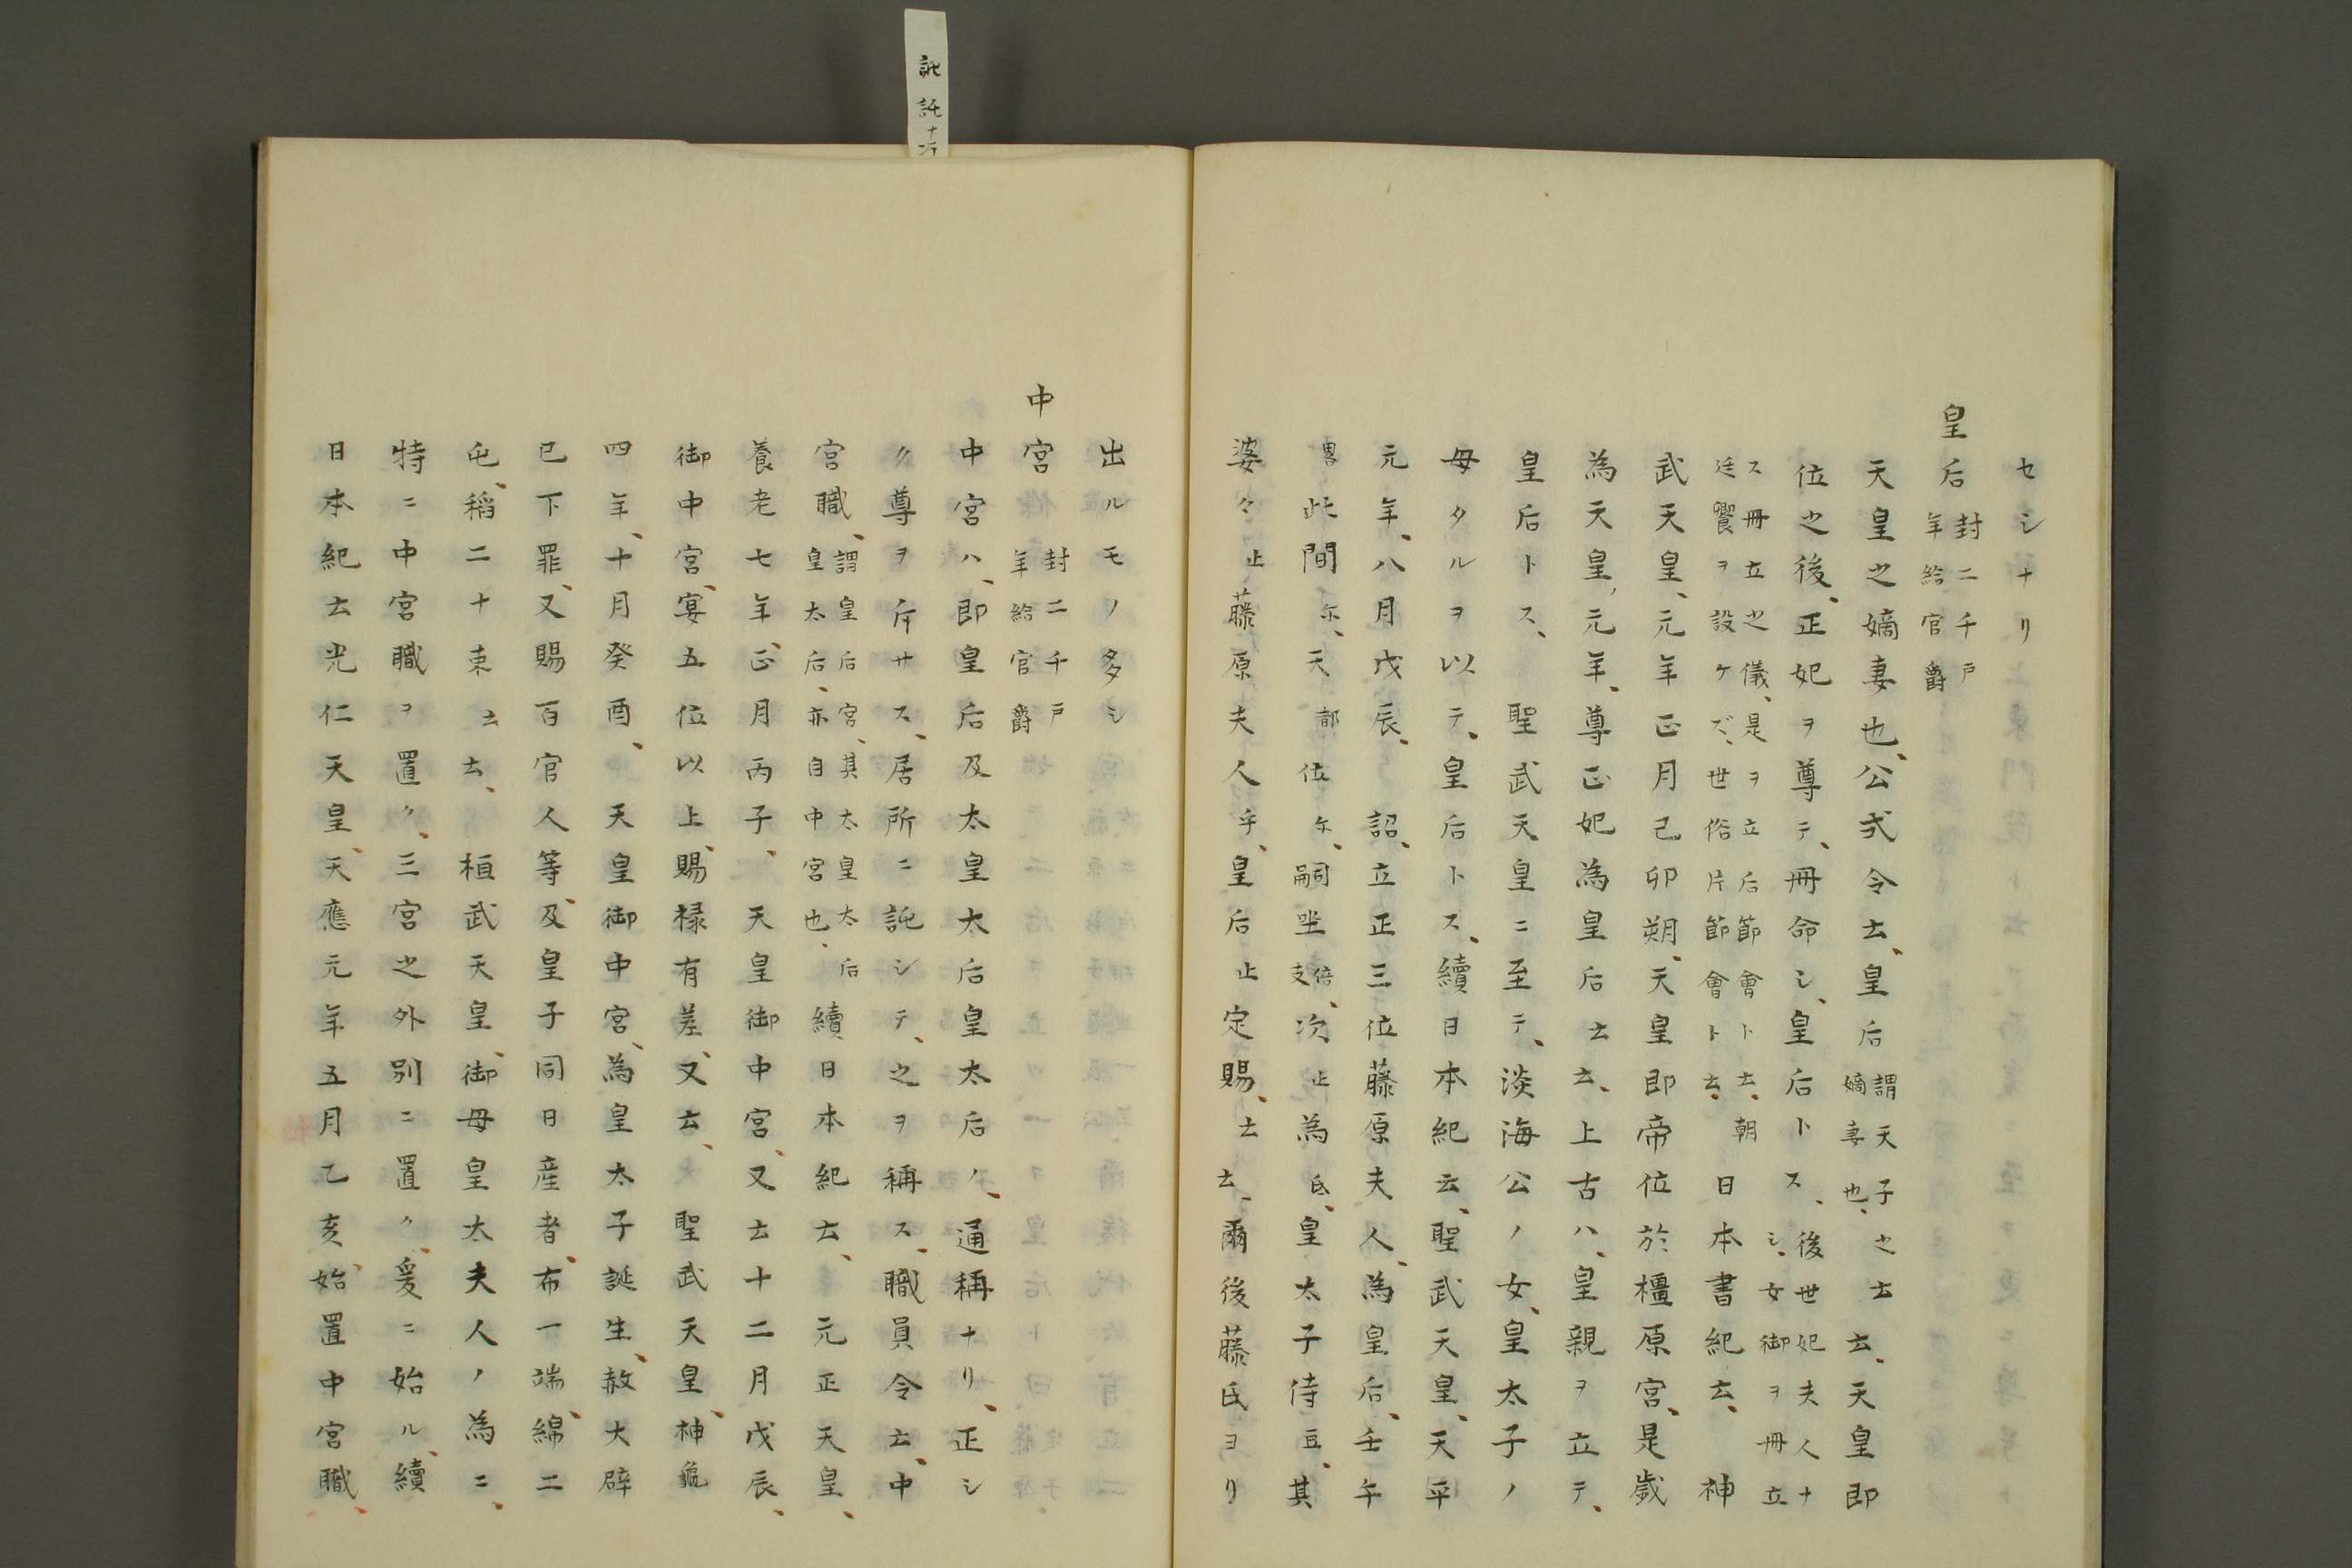 セシナリ
皇后 封二千戸 年給官爵
天皇之嫡妻也、公式令云、皇后 謂天子之嫡妻也、 云云、天皇即
位之後、正妃ヲ尊テ、冊命シ、皇后トス、 後世妃夫人ナシ、女御ヲ冊立
ス冊立之儀、是ヲ立后節會ト云、朝廷饗ヲ設ケズ、世俗片節會ト云、 日本書紀云、 神
武天皇、元年正月己卯朔、天皇即帝位於橿原宮、是歳
為天皇、元年、尊正妃為皇后云云、上古ハ、皇親ヲ立テ、
皇后トス、 聖武天皇ニ至テ、淡海公ノ女、皇太子ノ
母タルヲ以テ、皇后トス、續日本紀云、聖武天皇、天平
元年、八月戊辰、 詔、立正三位藤原夫人、為皇后、壬午
畧此間尓、天都位尓、嗣坐倍支、次止為氐、皇太子侍豆、其
婆々止藤原夫人乎、皇后止定賜、云云、爾後藤氏ヨリ
出ルモノ多シ
中宮 封二千戸 年給官爵
中宮ハ、即皇后及太皇太后皇太后ノ、通稱ナリ、正シ
ク尊ヲ斥サス、居所ニ託シテ、之ヲ稱ス、職員令云、中
宮職、 謂皇后宮、其太皇太后皇太后、亦自中宮也、 續日本紀云、 元正天皇、
養老七年、正月丙子、 天皇御中宮、又云十二月戊辰、
御中宮、宴五位以上、賜禄有差、又云、 聖武天皇、神龜
四年、十月癸酉、 天皇御中宮、為皇太子誕生、赦大辟
已下罪、又賜百官人等、及皇子同日産者、布一端、綿二
屯、稲二十束云云、 桓武天皇、御母皇太夫人ノ為ニ、
特ニ中宮職ヲ置ク、三宮之外別ニ置ク、爰ニ始ル、續
日本紀云光仁天皇、天應元年五月乙亥、始置中宮職、